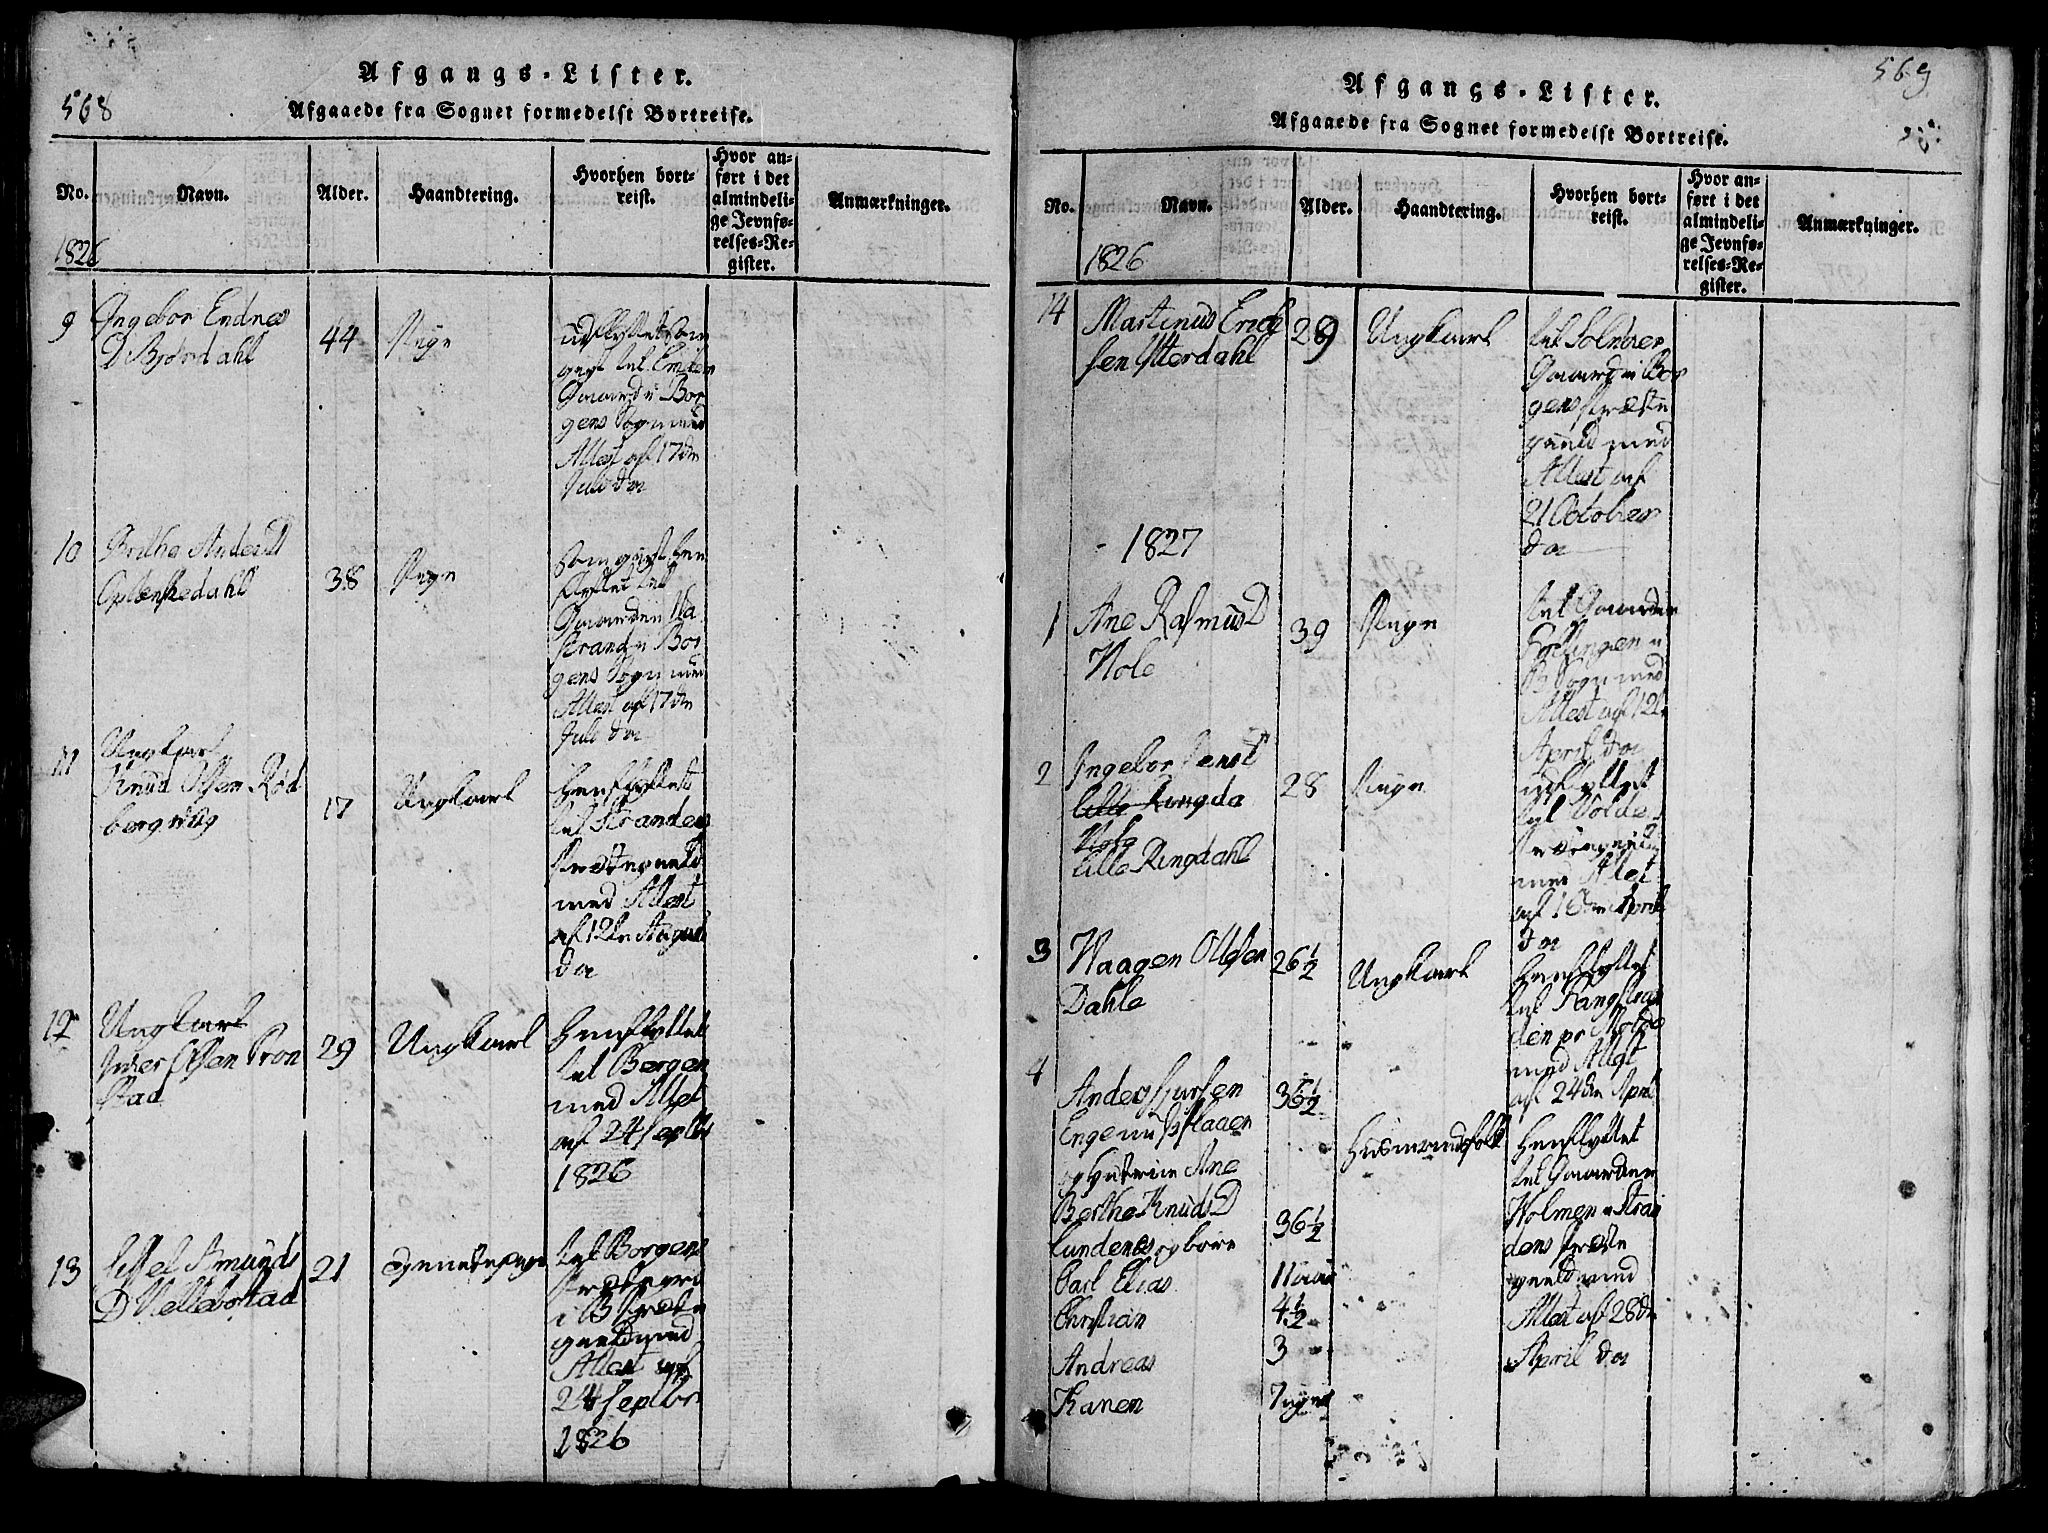 568
Afgangs-Lister.
Afgaaede fra Sognet formedelst Bortreise.
No.
Navn.
Alder.
Haandtering.
Hvorhen bort-
reist.
Hvor an-
ført i det
almindeli-
ge Jevnfø-
relses-Re-
gister.
Anmærkninger.
1826
9
Ingebor Endres
D Brördahl
44
Pige
udflyttet som
gift til
Gaard i Bor
gens Sogn med
Attest af 17de
Juli da
10
Brithe Anders D
38
Pige
som gift hen
flyttet til
Gaarden Na
strand i Bor
gens Sogn med
Attest af 17de
Juli da
11
Ungkarl
Knud Olsen Rød
berg
17
Ungkarl
henflyttet
til Strandens
Præstegield
med Attest
af 12te August
da
12
Ungkarl
Iver Olsen Tron
stad
29
Ungkarl
henflyttet
til Bergen
med Attest
af 24 Septbr
1826
13
Sissel Amunds
D Vellebostad
21
Tjenestepige
til Borgens
Præstegrd
i B Præste
gield med
Attest af
24 Septbr
1826
569
Afgangs-Lister.
Afgaaede fra Sognet formedelst Bortreise.
No.
Navn.
Alder.
Haandtering.
Hvorhen bort-
reist.
Hvor an-
ført i det
almindeli-
ge Jevnfø-
relses-Re-
gister.
Anmærkninger.
1826
14
Martinus Erich
sen Ytterdahl
29
Ungkarl
til Solnør
Gaard i Bor
gens Præste
gield med
Attest af
21 October
da
1827
1
Ane Rasmus D
Hole
39
Pige
til Gaarden
i
B Sogn med
Attest af 12te
April da
2
Ingebor Jens D
Lille Ringda
Lille Ringdahl
28
Pige
udflyttet
til Volde
Præstegield
med Attest
af 16de April
da
3
Haagen Olsen
Dahle
26½
Ungkarl
henflyttet
til
den pr Molde
med Attest
af 24de April
4
Anders
og hustrue Ane
Berthe Knuds D
og børn
Carl Elias
Christian
Andreas
Karen
36½
36½
11 aar
4½
3
7 uger
Husmandsfolk
henflyttet
til Gaarden
Holmen i Stran
dens Præste
gield med
Attest af 28de
April da